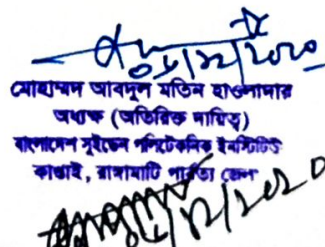 ০১/১২/২০২০
মোহাম্মদ আবদুল মতিন হাওলাদার
অধ্যক্ষ (অতিরিক্ত দায়িত্ব)
বাংলাদেশ সুইডেন পলিটেকনিক ইনস্টিটিউট
কাপ্তাই, রাঙ্গামাটি পার্বত্য জেলা